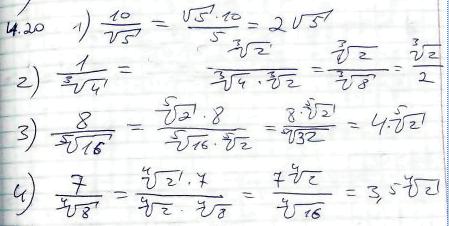 4.20 1) 10/√5 = √5·10/5 = 2√5
2) 1/∛4 = ∛2/(∛4·∛2) = ∛2/∛8 = ∛2/2
3) 8/⁵√16 = ⁵√2·8/(⁵√16·⁵√2) = 8·⁵√2/⁵√32 = 4·⁵√2
4) 7/⁴√8 = ⁴√2·7/(⁴√2·⁴√8) = 7⁴√2/⁴√16 = 3,5⁴√2